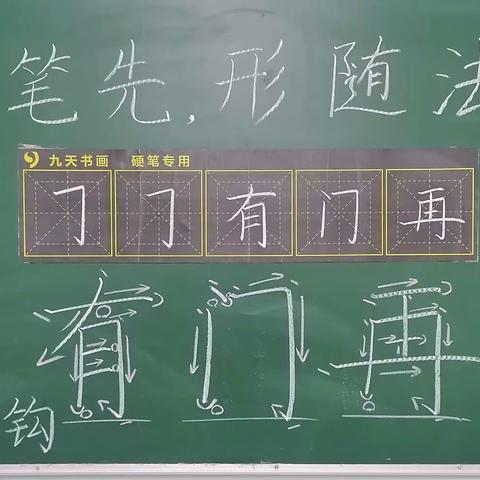 笔先,形随法
九天书画 硬笔专用
𠃌 𠃌 有 门 再
有 门 再
钩